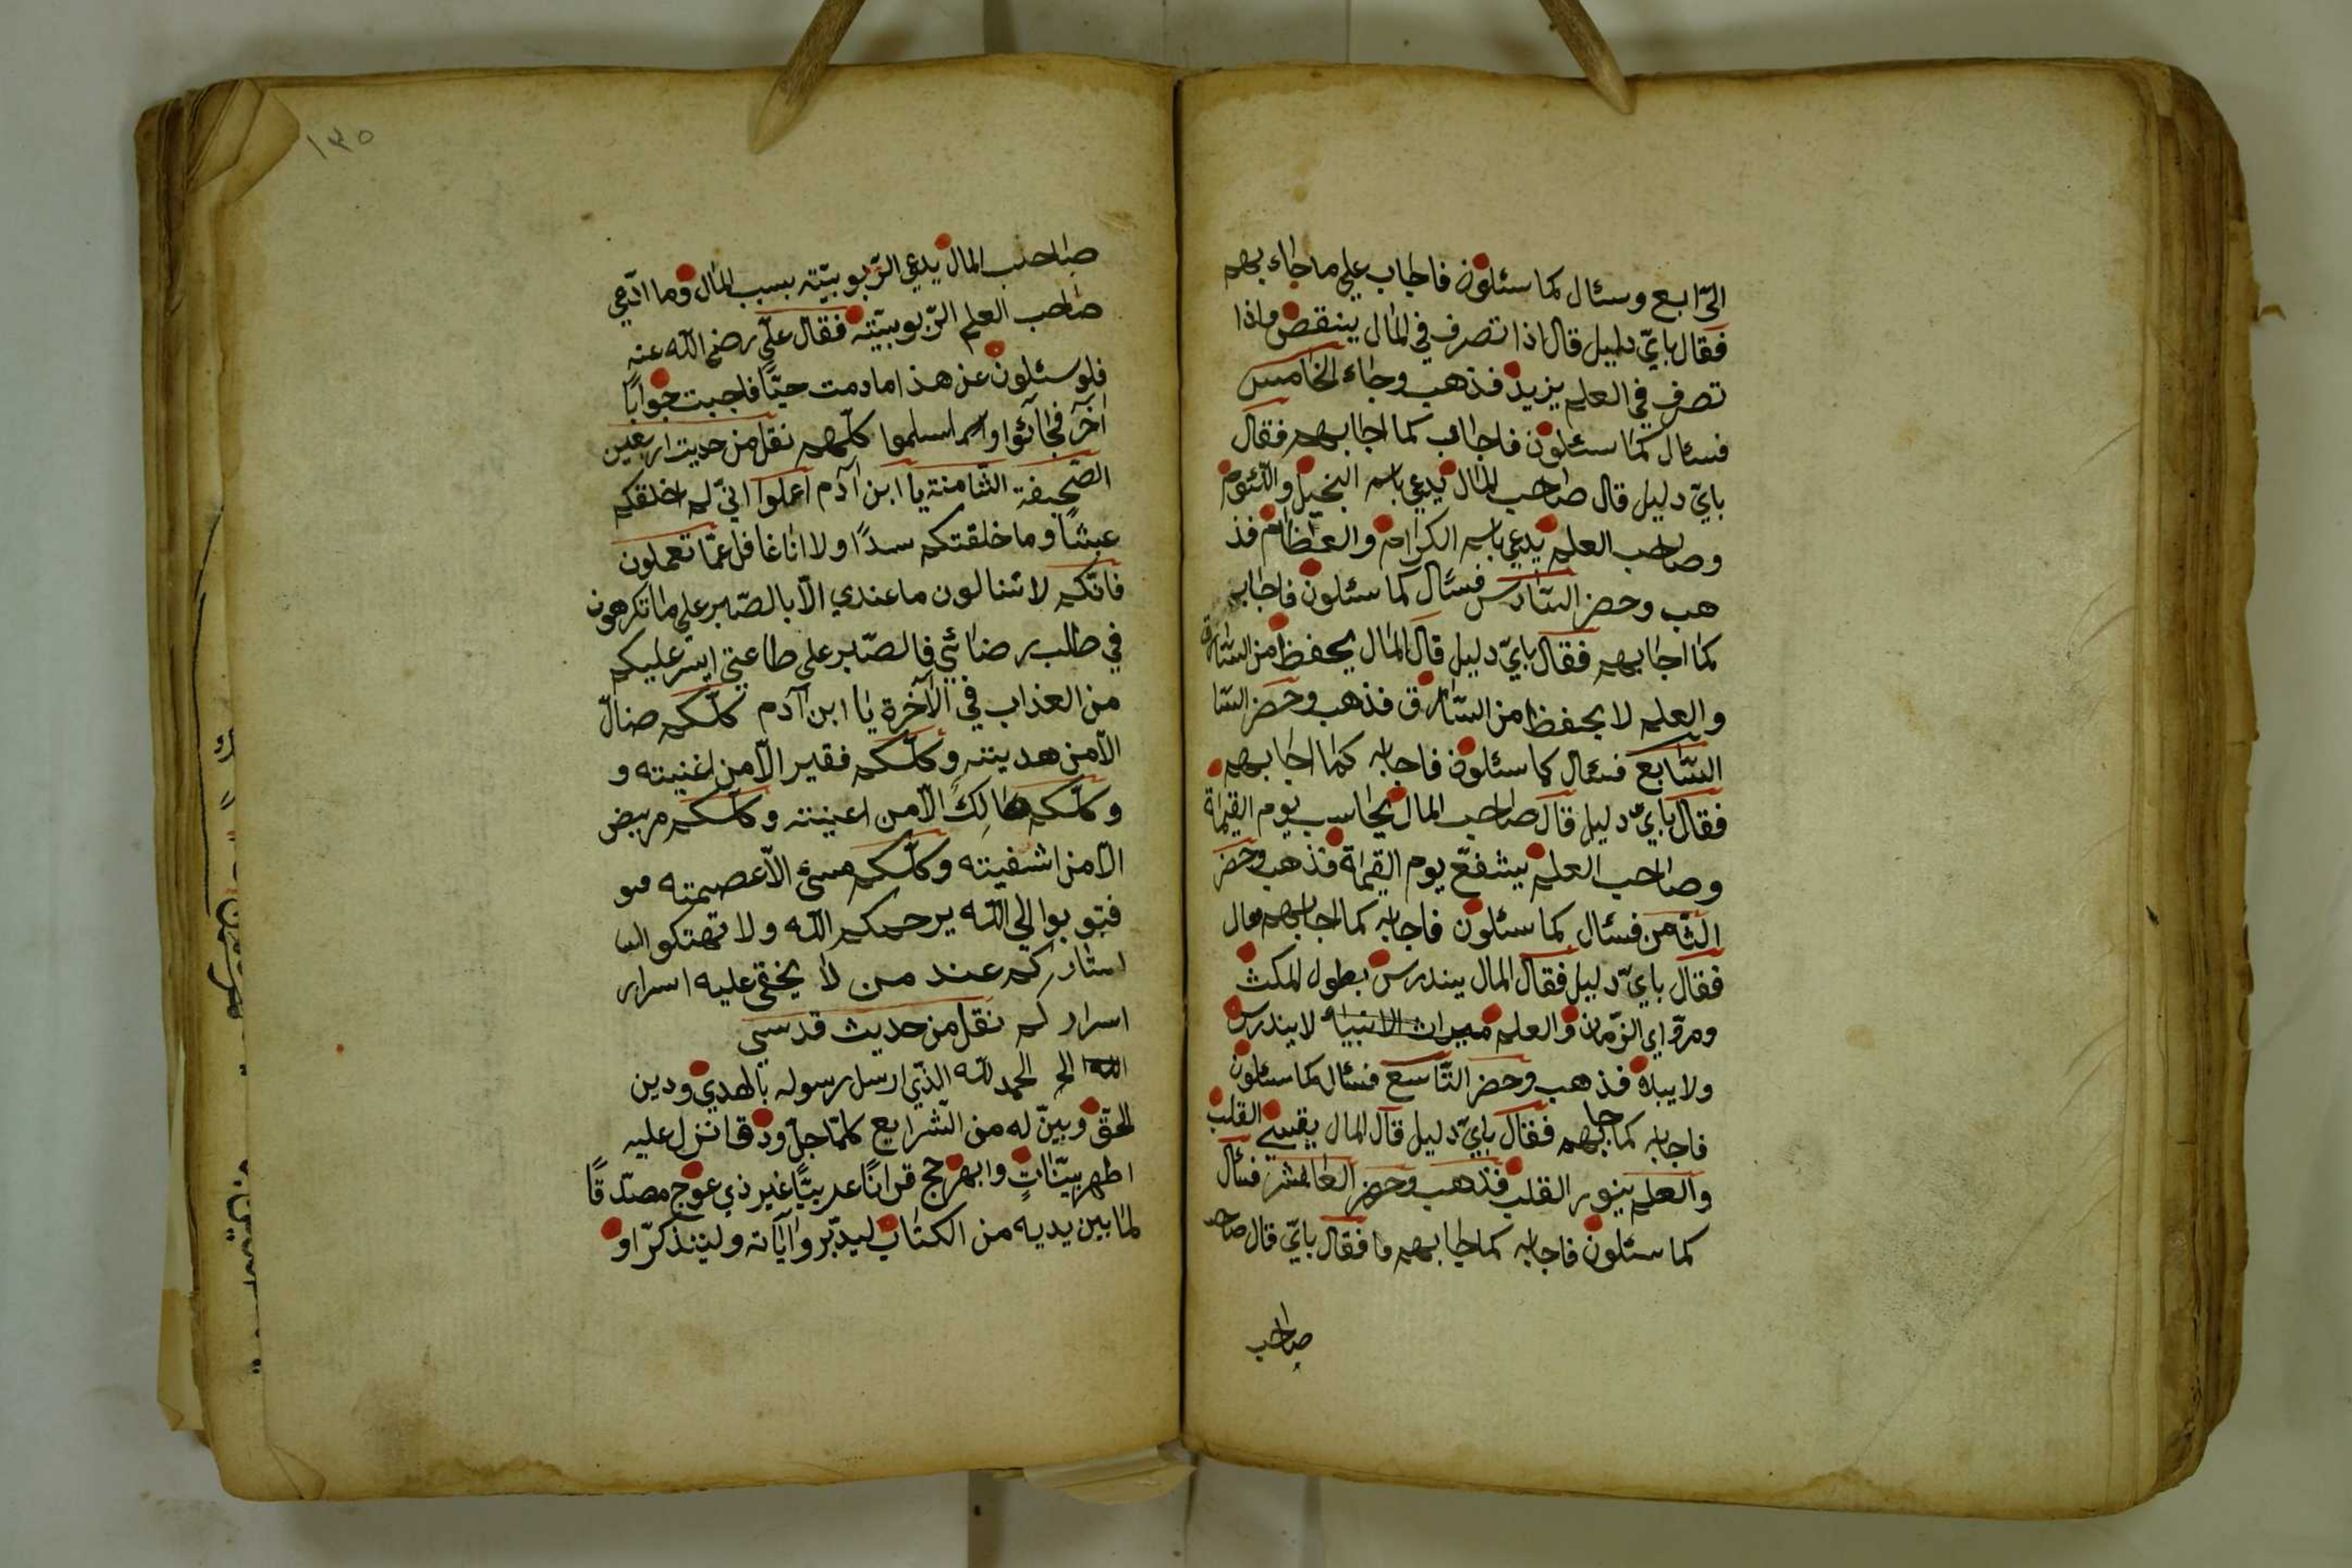 الرّابع وسئال كما سئلون فاجاب علي ما جاء بهم
فقال بايّ دليل قال اذا تصرف في المال ينقص واذا
تصرف في العلم يزيد فذهب وجاء الخامس
فسئال كما سئلون فاجاب كما اجابهم فقال
بايّ دليل قال صاحب المال يدعي باسم البخيل واللئوم
وصاحب العلم يدعي باسم الكرام والعظام فذ
هب وحضر السّادس فسئال كما سئلون فاجابه
كما اجابهم فقال بايّ دليل قال المال يحفظ من السّارق
والعلم لا يحفظ من السّارق فذهب وحضر السّا
السّابع فسئال كما سئلون فاجابه كما اجابهم
فقال بايّ دليل قال صاحب المال يحاسب يوم القيمة
وصاحب العلم يشفعّ يوم القيمة فذهب وحضر
الثّامن فسئال كما سئلون فاجابه كما اجابهم
فقال بايّ دليل فقال المال يندرس بطول المكث
ومرّ اي الزّمان والعلم ميراث الانبياء لا يندرس
ولا يبلاه فذهب وحضر التّاسع فسئال كما سئلون
فاجابه كما جابهم فقال بايّ دليل قال المال يقسي القلب
والعلم ينور القلب فذهب وحضر العاشر فسئال
كما سئلون فاجابه كما جابهم فقال بايّ قال صاحب
صاحب
١٣٥
صاحب المال يدعي الرّبوبيّته بسبب المال وما ادّعي
صاحب العلم الرّبوبيّته فقال عليّ رضي الله عنه
فلو سئلون عن هذا ما دمت حيّا فاجبت جوابًا
آخر فجائوا واسلموا كلّهم نقل من حديث اربعين
الصّحيفة الثّامنة يا ابن آدم اعملوا انّي لم اخلقكم
عبثًا وما خلقتكم سدًا ولا انا غافل عمّا تعملون
فانّكم لا تنالون ما عندي الّا بالصّبر علي ما تكرهون
في طلب رضائي فالصّبر علي طاعتي ايسر عليكم
من العذاب في الآخرة يا ابن آدم كلّكم ضالّ
الّا من هديته وكلّكم فقير الّا من اغنيته و
وكلّكم هالك الّا من اعنيته وكلّكم مريض
الّا من اشفيته وكلّكم مسئ الّا عصيمته
فتوبوا الي الله يرحمكم الله ولا تهتكوا
استاركم عند من لا يخفي عليه اسرار
اسراركم نقل من حديث قدسي
الحمد لله الّذي ارسل رسوله بالهدي ودين
الحقّ وبيّن له من الشّرايع كلمّا جلّ ودقّ انزل عليه
اظهر بيّناتٍ وابهر حجج قرانًا عربيًّا غير ذي عوج مصدّقًا
لما بين يديه من الكتاب ليدبّروا آياته وليتذكّر او